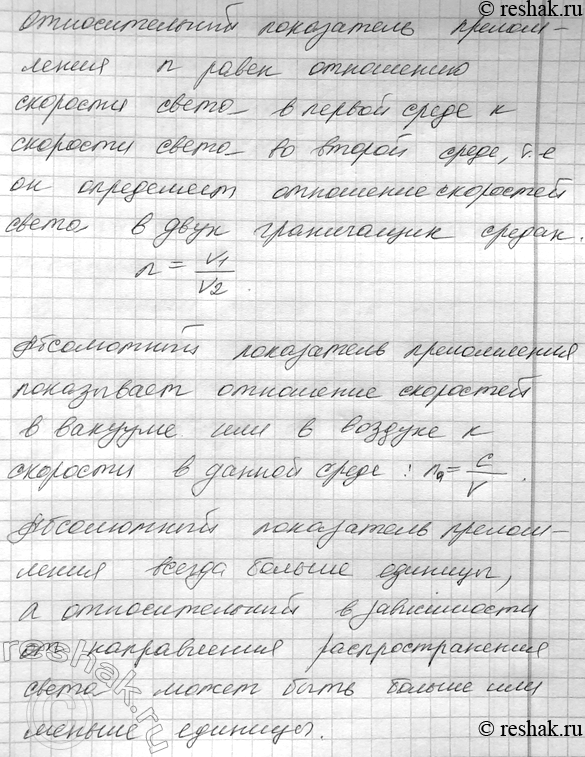 Относительный показатель прелом-
ления n равен отношению
скорости света в первой среде к
скорости света во второй среде, т.е
он определяет отношение скоростей
света в двух граничащих средах.
n = V1/V2.
Абсолютный показатель преломления
показывает отношение скоростей
в вакууме или в воздухе к
скорости в данной среде: nа = c/V.
Абсолютный показатель прелом-
ления всегда больше единицы,
а относительный в зависимости
от направления распространения
света может быть больше или
меньше единицы.
reshak.ru
© reshak.ru